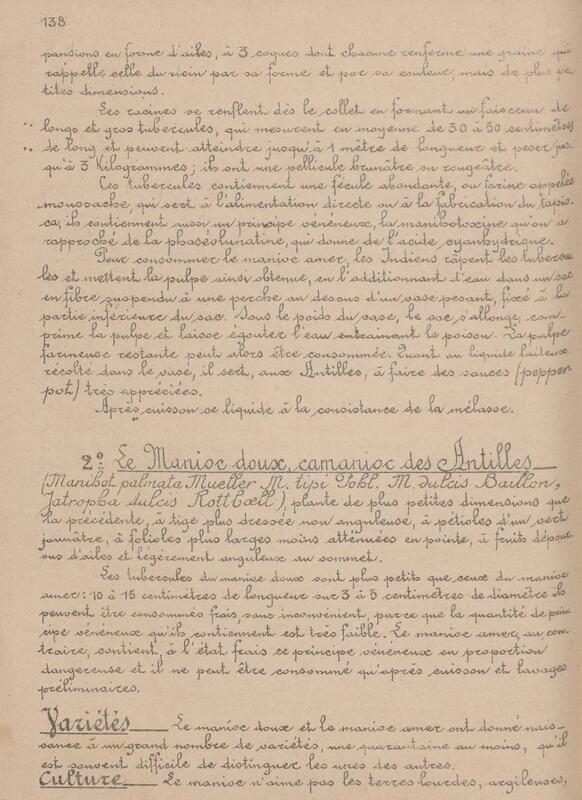 138
pansions en forme d'ailes, à 3 coques dont chacune renferme une graine qui
rappelle celle du ricin par sa forme et par sa couleur, mais de plus pe-
tites dimensions.
Les racines se renflent dès le collet en formant un faisceau de
longs et gros tubercules, qui mesurent en moyenne de 30 à 50 centimètres
de long et peuvent atteindre jusqu'à 1 mètre de longueur et peser jus
qu'à 3 Kilogrammes; ils ont une pellicule brunâtre ou rougeâtre.
Ces tubercules contiennent une fécule abondante, ou farine appelée
moussache, qui sert à l'alimentation directe ou à la fabrication du tapio-
ca; ils contiennent aussi un principe vénéneux, la manihotoxine qu'on a
rapproché de la phaséolunatine, qui donne de l'acide cyanhydrique.
Pour consommer le manioc amer, les Indiens râpent les tubercu
les et mettent la pulpe ainsi obtenue, en l'additionnant d'eau dans un sac
en fibre suspendu à une perche au dessous d'un vase pesant, fixé à la
partie inférieure du sac. Sous le poids du vase, le sac s'allonge, com-
prime la pulpe et laisse égoutter l'eau entrainant le poison. La pulpe
farineuse restante peut alors être consommée. Quant au liquide laiteux
récolté dans le vase, il sert, aux Antilles, à faire des sauces (pepper-
pot) très appréciées.
Après cuisson ce liquide à la consistance de la mélasse.
2º. Le Manioc doux, camanioc des Antilles
(Manihot palmata Mueller M. tipi Pohl. M. dulcis Baillon,
Jatropha dulcis Rottbœll) plante de plus petites dimensions que
la précédente, à tige plus dressée non anguleuse, à pétioles d'un vert
jaunâtre, à folioles plus larges moins atténuées en pointe, à fruits dépour
vus d'ailes et légèrement anguleux au sommet.
Les tubercules du manioc doux sont plus petits que ceux du manioc
amer: 10 à 15 centimètres de longueur sur 3 à 5 centimètres de diamètre ils
peuvent être consommés frais, sans inconvénient, parce que la quantité de prin
cipe vénéneux qu'ils contiennent est très faible. Le manioc amer, au con-
traire, contient, à l'état frais ce principe vénéneux en proportion
dangereuse et il ne peut être consommé qu'après cuisson et lavages
préliminaires.
Variétés Le manioc doux et le manioc amer ont donné nais-
sance à un grand nombre de variétés, une quarantaine au moins, qu'il
est souvent difficile de distinguer les unes des autres.
Culture Le manioc n'aime pas les terres lourdes, argileuses,